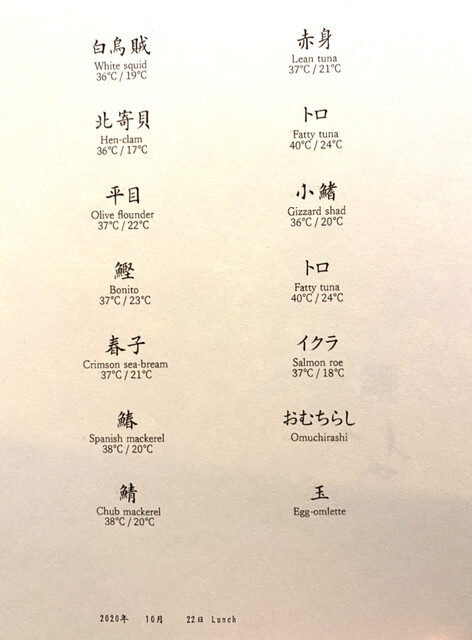 白烏賊
White squid
36℃ / 19℃
北寄貝
Hen-clam
36℃ / 17℃
平目
Olive flounder
37℃ / 22℃
鰹
Bonito
37℃ / 23℃
春子
Crimson sea-bream
37℃ / 21℃
鰆
Spanish mackerel
38℃ / 20℃
鯖
Chub mackerel
38℃ / 20℃
赤身
Lean tuna
37℃ / 21℃
トロ
Fatty tuna
40℃ / 24℃
小鰭
Gizzard shad
36℃ / 20℃
トロ
Fatty tuna
40℃ / 24℃
イクラ
Salmon roe
37℃ / 18℃
おむちらし
Omuchirashi
玉
Egg-omlette
2020年 10月 22日 Lunch